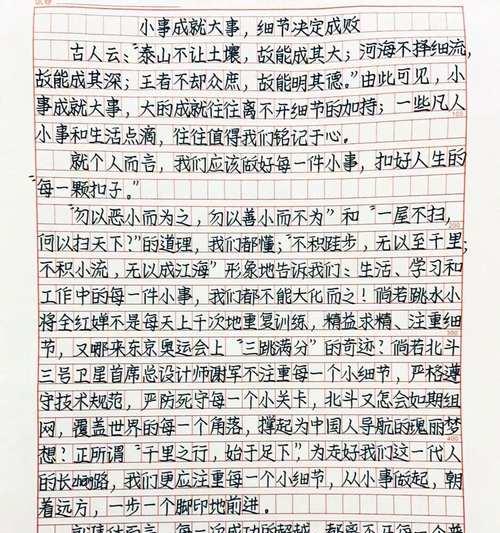 小事成就大事，细节决定成败
古人云：“泰山不让土壤，故能成其大；河海不择细流，
故能成其深；王者不却众庶，故能明其德。”由此可见，小
事成就大事，大的成就往往离不开细节的加持；一些凡人
小事和生活点滴，往往值得我们铭记于心。
就个人而言，我们应该做好每一件小事，扣好人生的
“每一颗扣子。”
“勿以恶小而为之，勿以善小而不为”和“一屋不扫，
何以扫天下？”的道理，我们都懂；“不积跬步，无以至千里；
不积小流，无以成江海”形象地告诉我们：生活、学习和
工作中的每一件小事，我们都不能大化而之！倘若跳水小
将全红婵不是每天上千次地重复训练，精益求精、注重细
节，又哪来东京奥运会上“三跳满分”的奇迹？倘若北斗
三号卫星首席总设计师谢军不注重每一个小细节，严格遵
守技术规范，严防死守每一个小关卡，北斗又怎会如期组
网，覆盖世界的每一个角落，撑起为中国人导航的瑰丽梦
想？正所谓“千里之行，始于足下”，为走好我们这一代人
的长征路，我们更应注重每一个小细节，从小事做起，朝
着远方，一步一个脚印地前进。
100
200
300
400